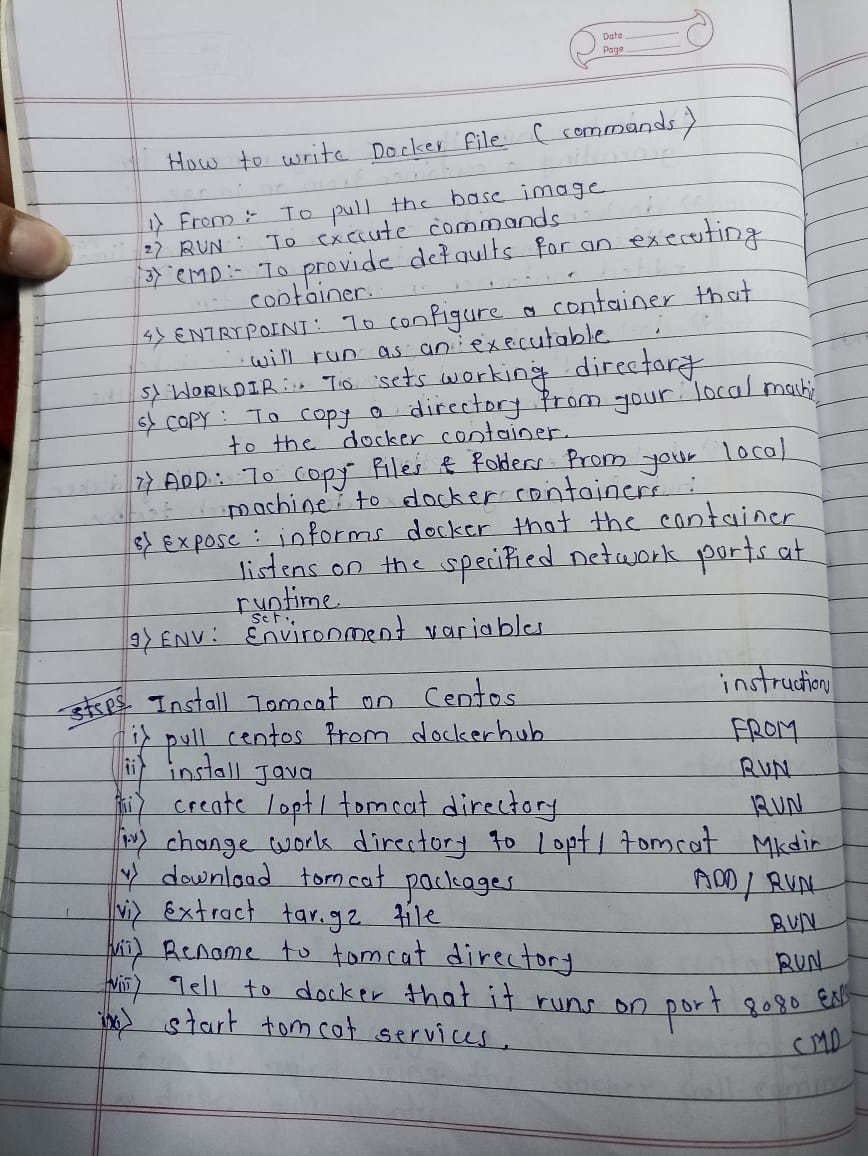 Date
Page
How to write Docker File (commands)
1) From:- To pull the base image
2) RUN: To execute commands
3) CMD:- To provide defaults for an executing
container.
4) ENTRYPOINT: To configure a container that
will run as an executable
5) WORKDIR:. To sets working directory
6) COPY: To copy a directory from your local machi
to the docker container.
7) ADD: To copy files & folders from your local
machine to docker containers
8) expose: informs docker that the container
listens on the specified network ports at
runtime
set
9) ENV: Environment variables
steps Install Tomcat on Centos instruction
i) pull centos from dockerhub FROM
ii) install Java RUN
iii) create /opt/ tomcat directory RUN
iv) change work directory to /opt/ tomcat Mkdir
v) download tomcat packages ADD / RUN
vi) Extract tar.gz file RUN
vii) Rename to tomcat directory RUN
viii) Tell to docker that it runs on port 8080 Exp
ix) start tomcat services. CMD